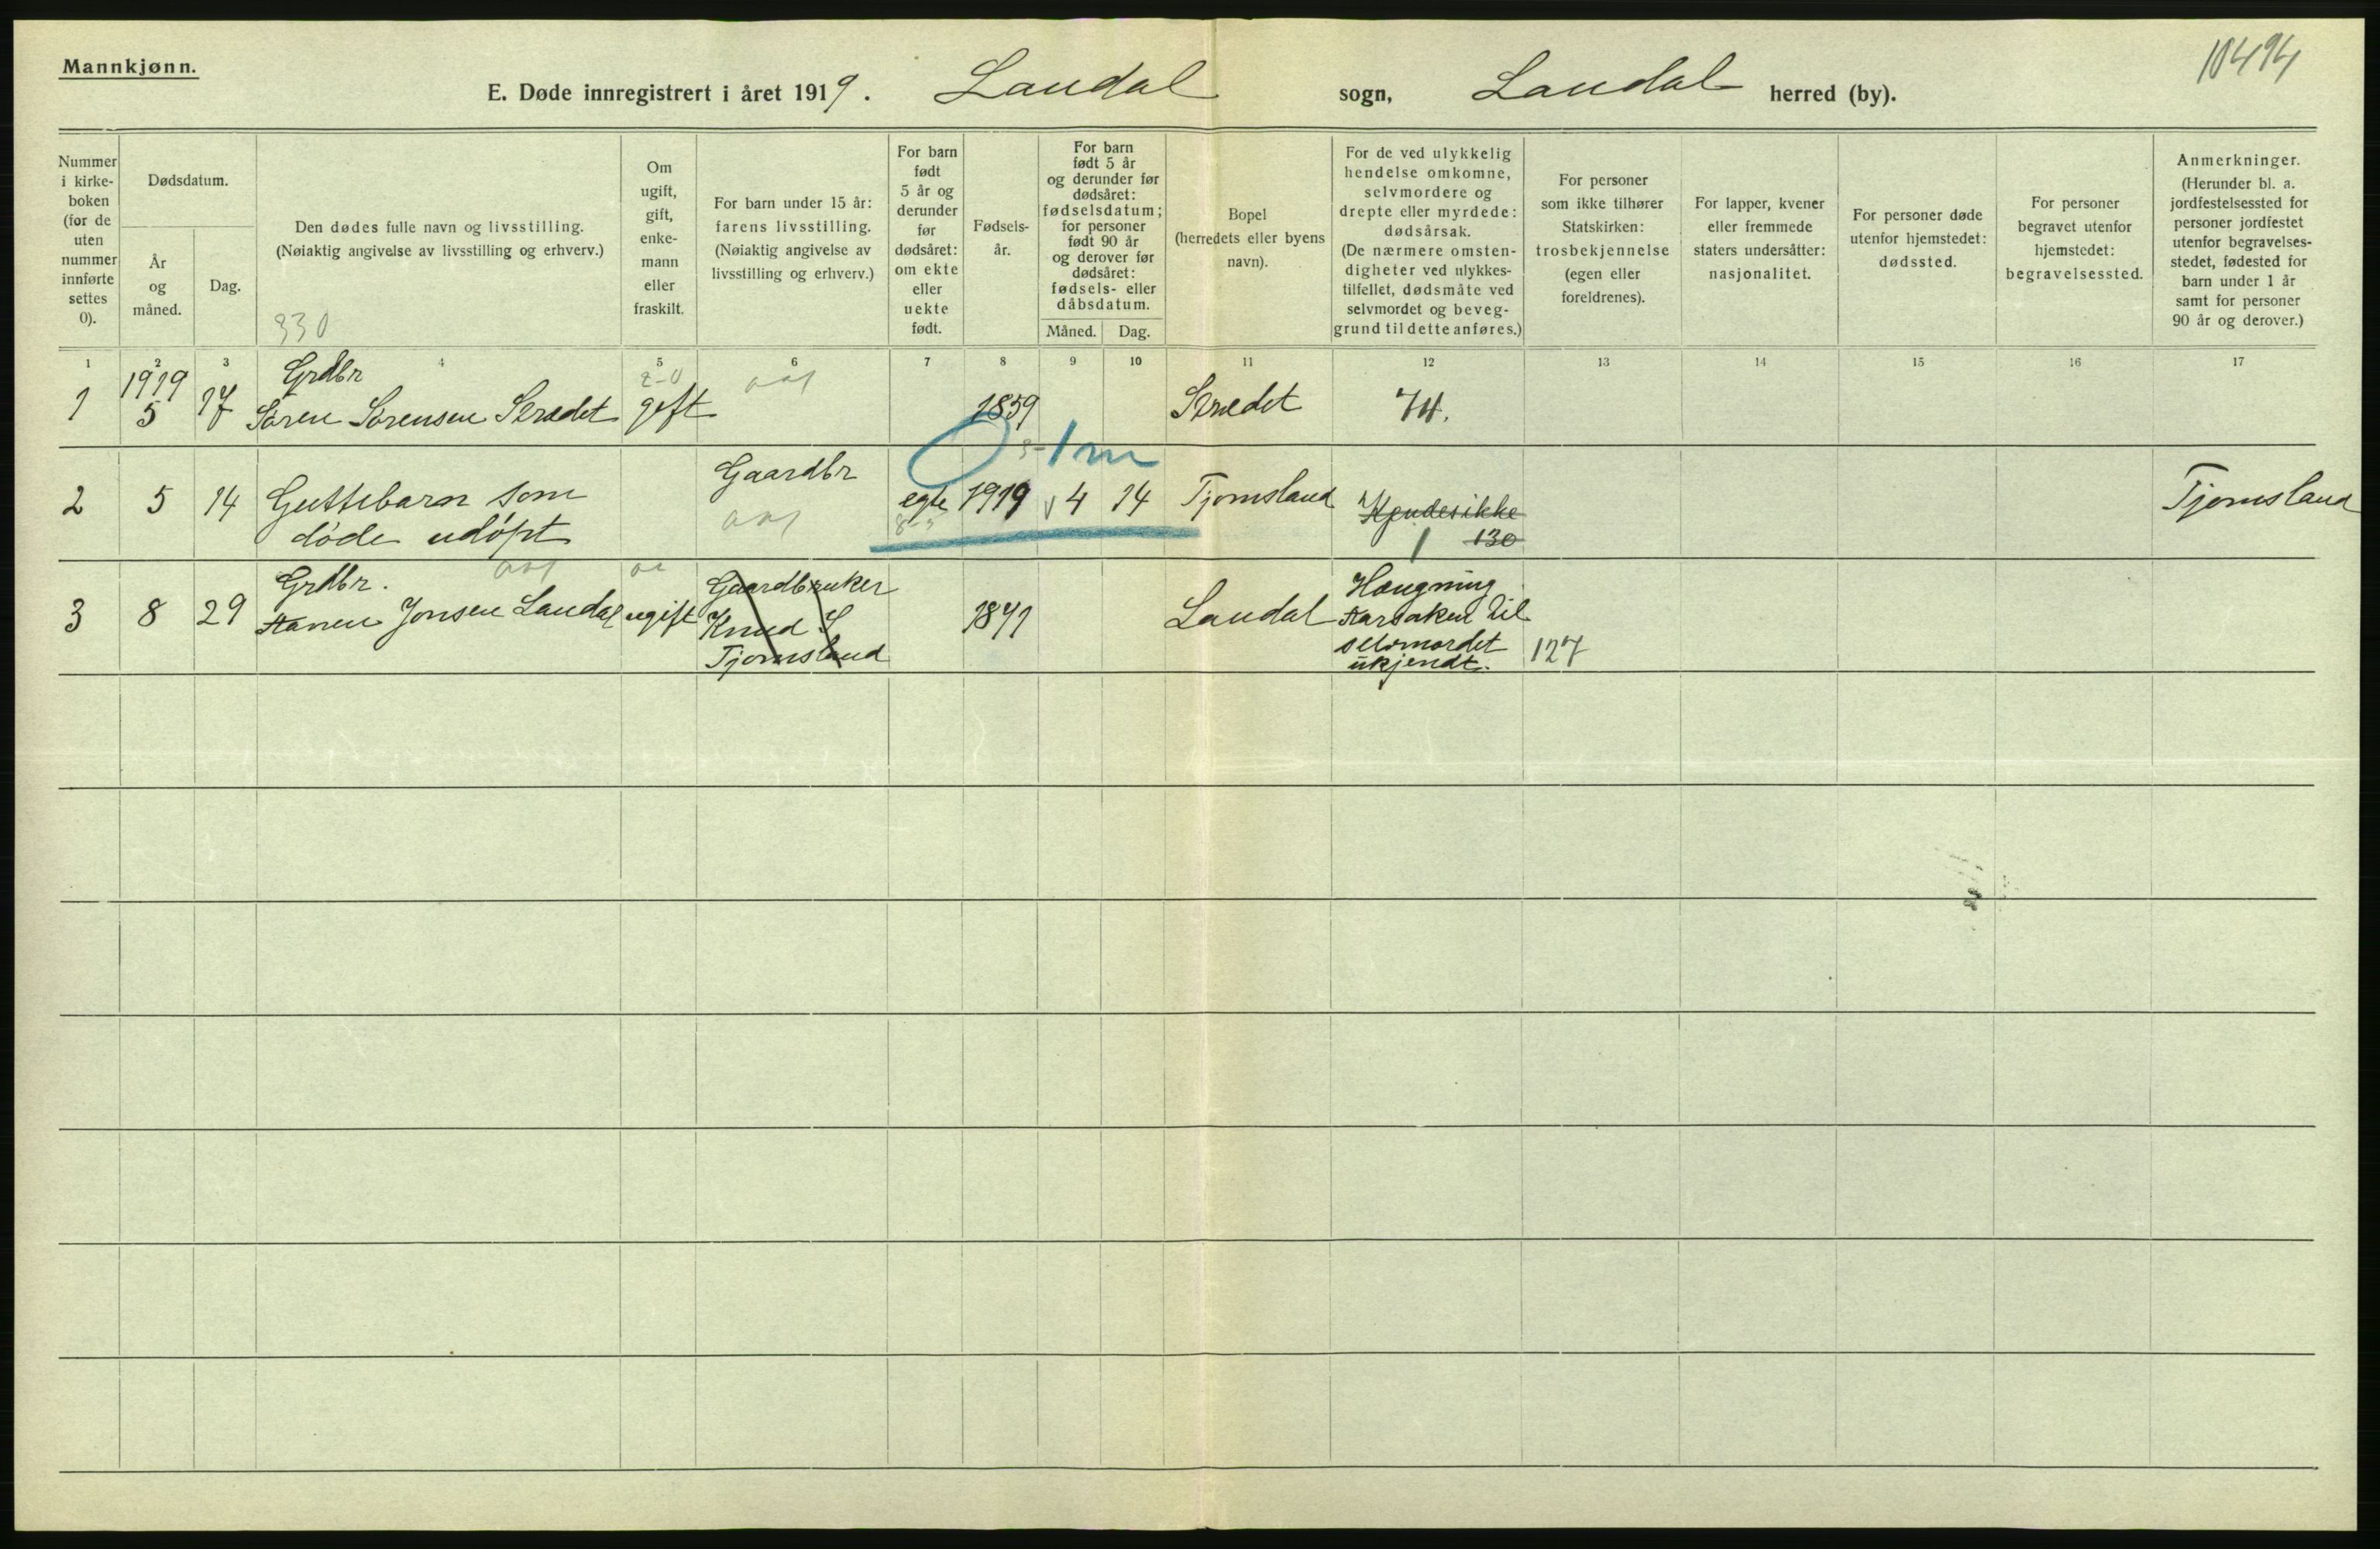 Mannkjønn.
10494
E. Døde innregistrert i året 1919. Laudal sogn, Laudal herred (by).
Nummer i kirke-boken (for de uten nummer innførte settes 0).
Dødsdatum.
År og måned.
Dag.
Den dødes fulle navn og livsstilling.
(Nøiaktig angivelse av livsstilling og erhverv.)
330
Om ugift, gift, enke-mann eller fraskilt.
For barn under 15 år: farens livsstilling. (Nøiaktig angivelse av livsstilling og erhverv.)
For barn født 5 år og derunder før dødsåret: om ekte eller uekte født.
Fødsels-år.
For barn født 5 år og derunder før dødsåret: fødselsdatum; for personer født 90 år og derover før dødsåret: fødsels- eller dåbsdatum.
Måned.
Dag.
Bopel (herredets eller byens navn).
For de ved ulykkelig hendelse omkomne, selvmordere og drepte eller myrdede: dødsårsak. (De nærmere omsten-digheter ved ulykkes-tilfellet, dødsmåte ved selvmordet og beveg-grund til dette anføres.)
For personer som ikke tilhører Statskirken: trosbekjennelse (egen eller foreldrenes).
For lapper, kvener eller fremmede staters undersåtter: nasjonalitet.
For personer døde utenfor hjemstedet: dødssted.
For personer begravet utenfor hjemstedet: begravelsessted.
Anmerkninger. (Herunder bl. a. jordfestelsessted for personer jordfestet utenfor begravelses-stedet, fødested for barn under 1 år samt for personer 90 år og derover.)
1 2 3 4 5 6 7 8 9 10 11 12 13 14 15 16 17
1919 Grdbr
1 5 17 Søren Sørensen gift 1859 74.
0 1 m
Gaardbr
2 5 14 Guttebarn som egte 1919 4 14 Tjomsland Kjendes ikke Tjomsland
døde udøpt 1 130
Grdbr. Gaardbruker Hængning
3 8 29 Jonsen Laudal ugift Knud S 1841 Laudal Aarsaken til
Tjomsland selvmordet 127
ukjendt.